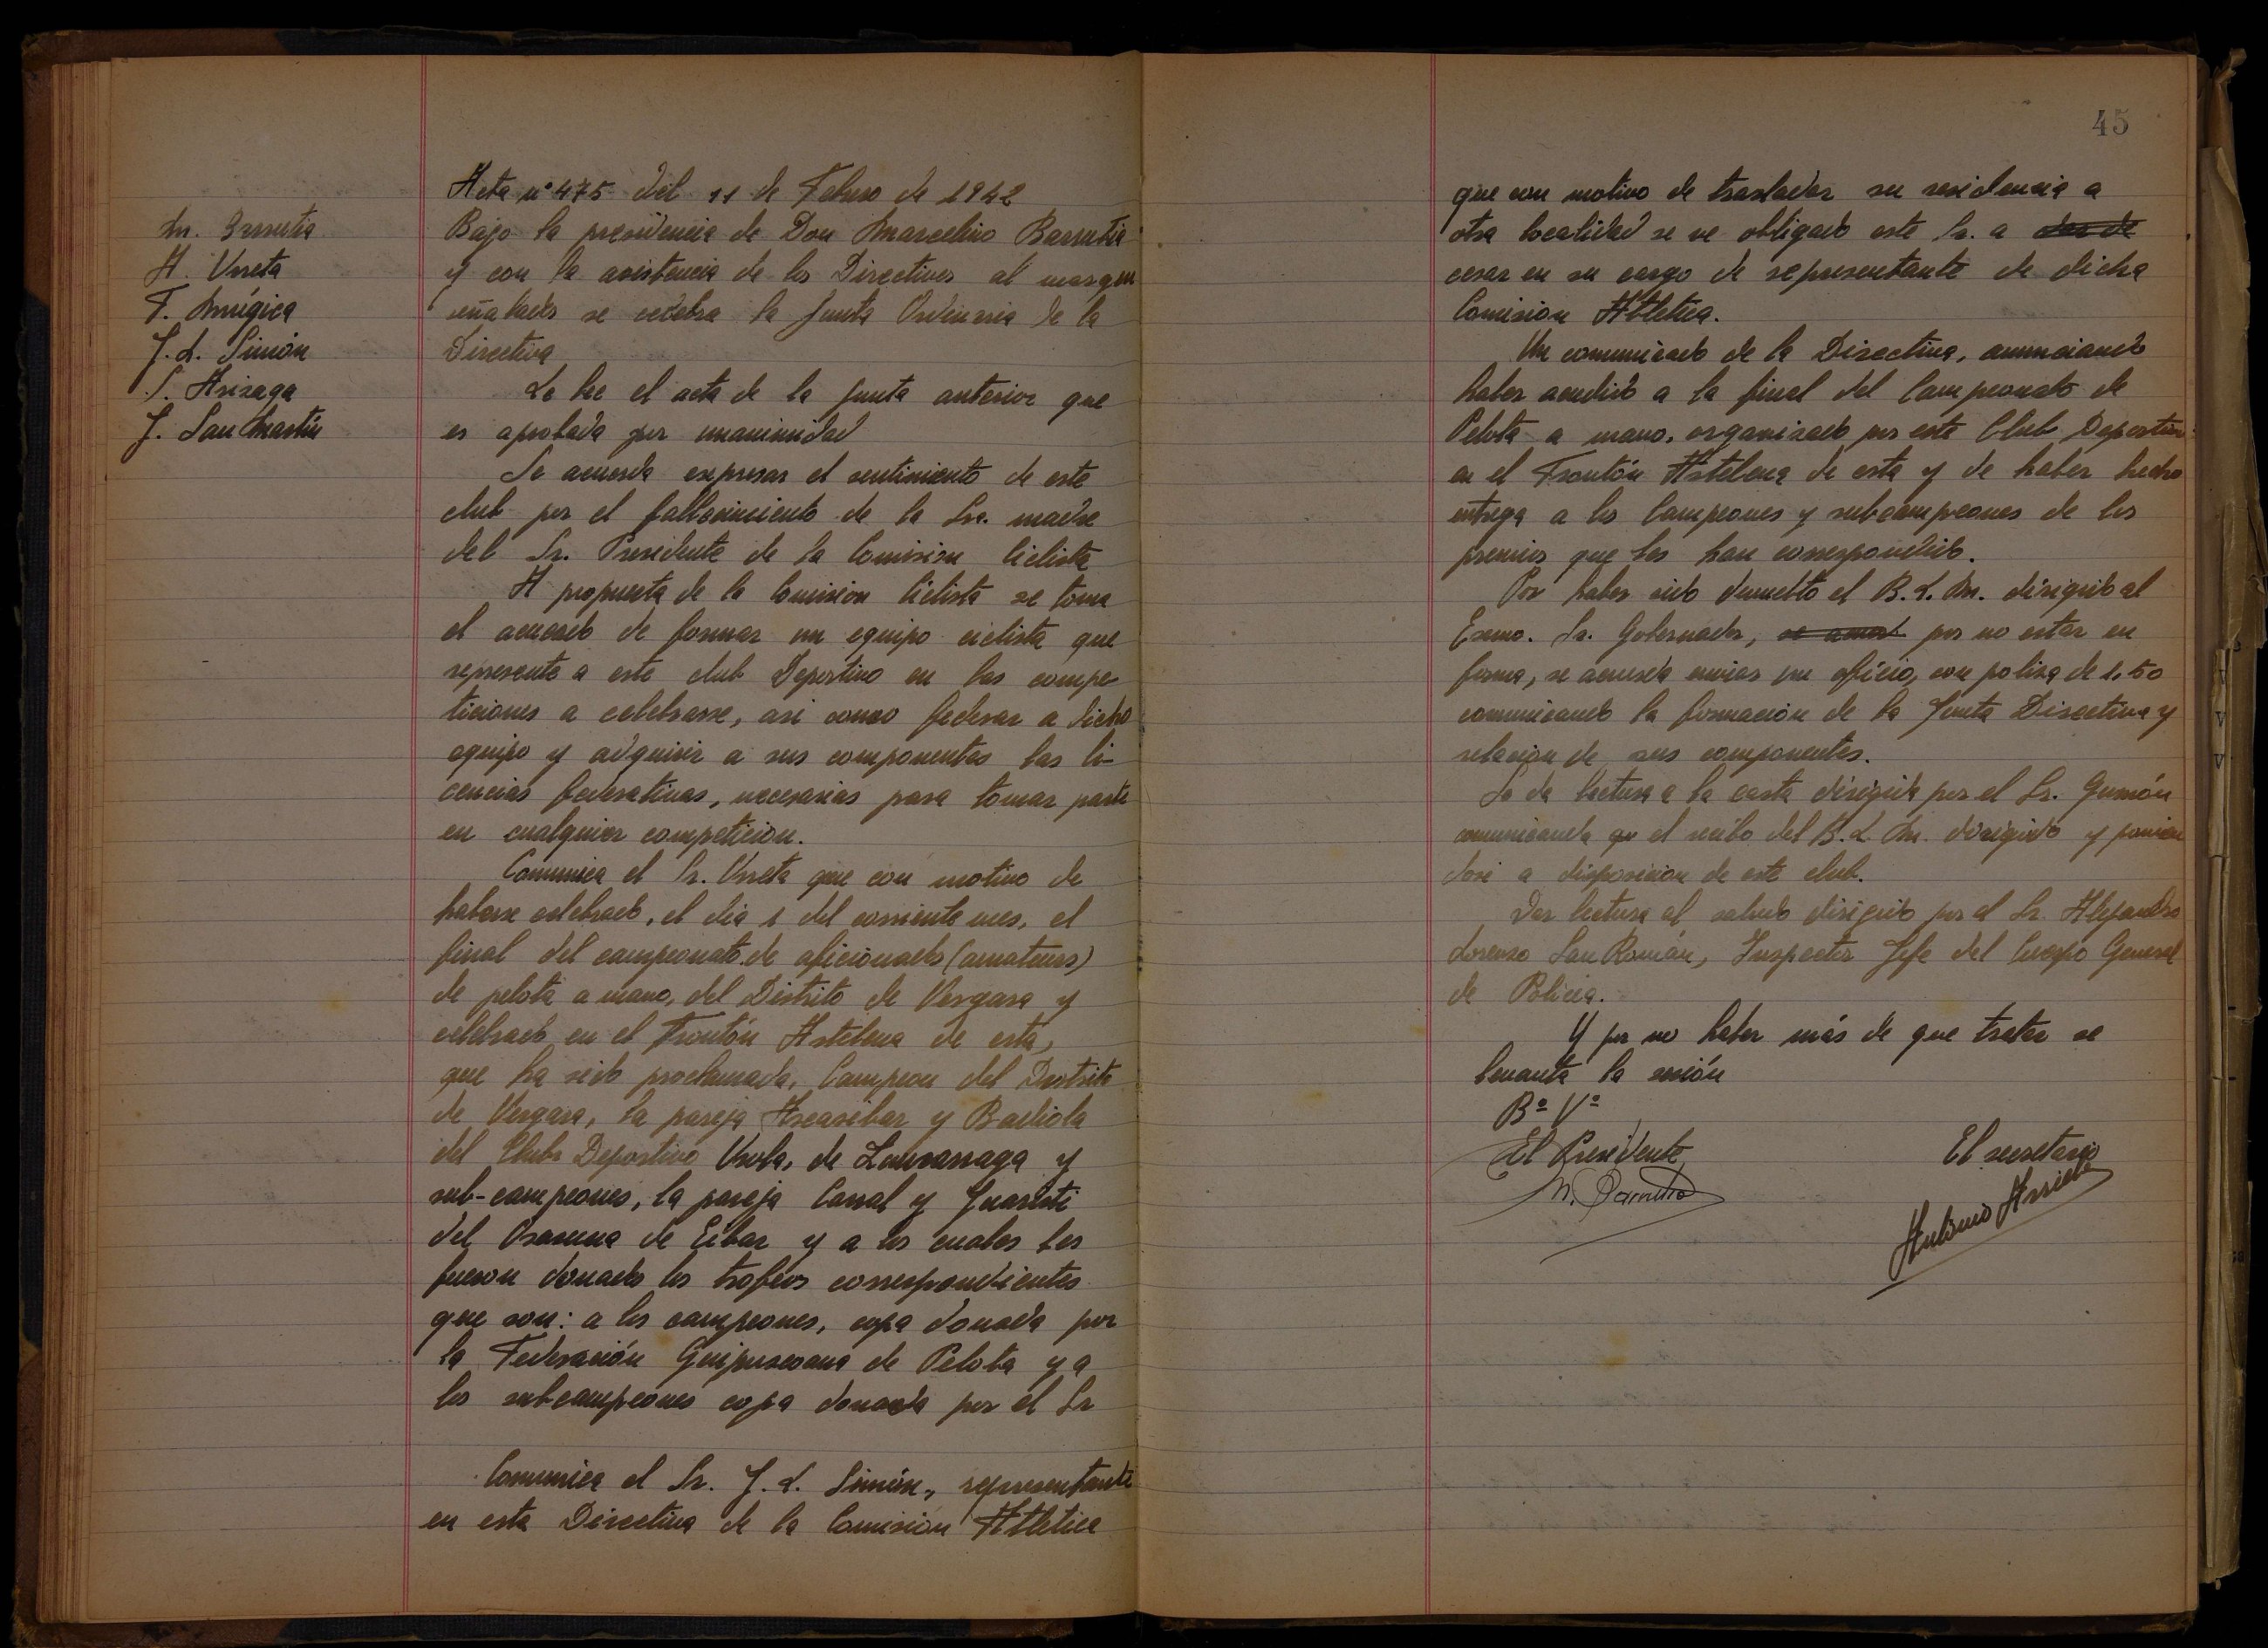 Acta nº 475 del 11 de Febrero de 1942
M. Barrutia
A. Urreta
F. Múgica
J. L. Simón
S. Arizaga
J. San Martín
Bajo la presidencia de Don Marcelino Barrutia
y con la asistencia de los Directivos al margen
señalados se celebra la Junta Ordinaria de la
Directiva
Se lee el acta de la junta anterior que
es aprobada por unanimidad
Se acuerda expresar el sentimiento de este
club por el fallecimiento de la Sra. madre
del Sr. Presidente de la Comision Ciclista
A propuesta de la Comision Ciclista se toma
el acuerdo de formar un equipo ciclista que
represente a este club Deportivo en las compe-
ticiones a celebrarse, asi como federar a dicho
equipo y adquirir a sus componentes las li-
cencias federativas, necesarias para tomar parte
en cualquier competicion.
Comunica el Sr. Urreta que con motivo de
haberse celebrado, el dia 1 del corriente mes, el
final del campeonato de aficionados (amateurs)
de pelota a mano, del Distrito de Vergara y
celebrado en el Frontón Astelena de esta,
que ha sido proclamada, Campeon del Distrito
de Vergara, la pareja Azcaribar y Badiola
del Club Deportivo Urola, de Zumarraga y
sub-campeones, la pareja Corral y Juaristi
del Osasuna de Eibar y a los cuales les
fueron donado los trofeos correspondientes
que son: a los campeones, copa donada por
la Federación Guipuzcoana de Pelota y a
los subcampeones copa donada por el Sr
Comunica el Sr. J. L. Simón, representante
en esta Directiva de la Comision Atletica
45
que con motivo de trasladar su residencia a
otra localidad se ve obligado este Sr. a dar de
cesar en su cargo de representante de dicha
Comision Atletica.
Un comunicado de la Directiva, anunciando
haber acudido a la final del Campeonato de
Pelota a mano, organizado por este Club Deportivo
en el Frontón Astelena de esta y de haber hecho
entrega a los Campeones y subcampeones de los
premios que les han correspondido.
Por haber sido devuelto el B.L.M. dirigido al
Exmo. Sr. Gobernador, se acord por no estar en
forma, se acuerda enviar un oficio, con poliza de 1,50
comunicando la formación de la Junta Directiva y
relacion de sus componentes.
Se da lectura a la carta dirigida por el Sr. Gumón
comunicando que el recibo del B.L.M. dirigido y ponien
dose a disposicion de este club.
Dar lectura al saludo dirigido por el Sr. Alejandro
Lorenzo San Román, Inspector Jefe del Cuerpo General
de Policia.
Y por no haber más de que tratar se
levanta la sesión
Bº Vº
El Presidente
El secretario
M. Barrutia
Antonio Arrieta